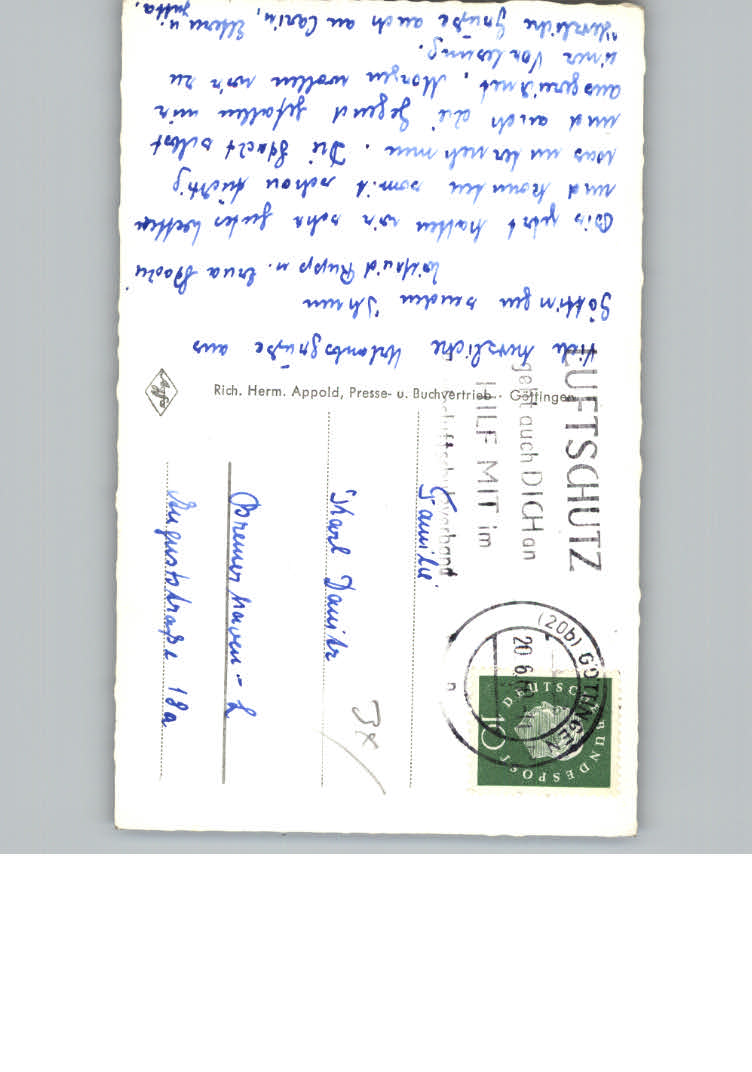 Viele herzliche Urlaubsgrüße aus
Göttingen senden Ihnen
Rupp u. Erna
Bis jetzt hatten wir sehr gutes Wetter
und konnten somit schon tüchtig
was unternehmen. Die Stadt selbst
und auch die Gegend gefallen mir
ausgezeichnet. Morgen wollen wir zu
einer Vorlesung.
Herzliche Grüße auch an Carin, Eltern u.
Jutta.
Rich. Herm. Appold, Presse- u. Buchvertrieb · Göttingen
Agfa
LUFTSCHUTZ
geht auch DICH an
HILF MIT im
Luftschutzverband
(20b) GÖTTINGEN
20.6.
DEUTSCHE BUNDESPOST
10
Familie
Karl
Bremerhaven - L
Auguststraße 18a
3x